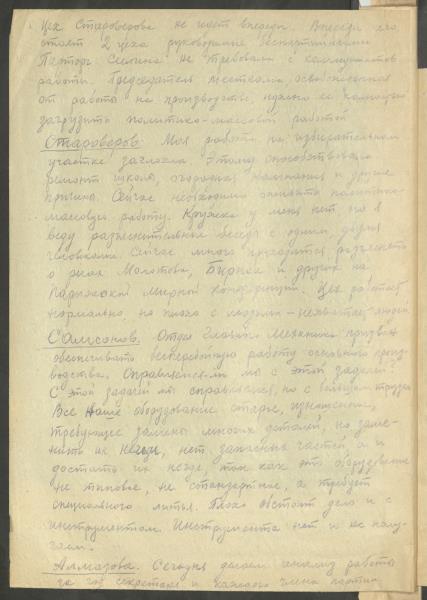 Цех Староверова не идет впереди. Впереди его
стоят 2 цеха руководимые беспартийными
Парторг Селина не требовала с коммунистов
работы. Председатель месткома, освобожденная
от работы на производстве, нужно ее
загрузить политико-массовой работой
Староверов: Моя работа на избирательном
участке заглохла. Этому способствовала
ремонт школы, и другие
причины. Сейчас необходимо политико-
массовую работу. Кружка у меня нет, но я
веду разъяснительные беседы с одним, двумя
человеками. Сейчас много приходится разъяснять
о речах Молотова, Бирнса и других на
Парижской мирной конференции. Цех работает
нормально, но плохо с людьми – нехватает людей
Самсонов. Отдел Главного Механика призван
обеспечивать бесперебойную работу основного произ-
водства. Справляемся ли мы с этой задачей?
С этой задачей мы справляемся, но с большим трудом
Все наше оборудование старое, изношенное,
требующее замены многих деталей, но заме-
нить их нечем, нет запасных частей, да и
достать их негде, так как это оборудование
не типовое, не стандартное, а требует
специального литья. Плохо обстоит дело и с
инструментом. Инструмента нет и не полу-
чаем.
Алмазова. Сегодня делаем анализ работы
за год секретаря и каждого члена партии